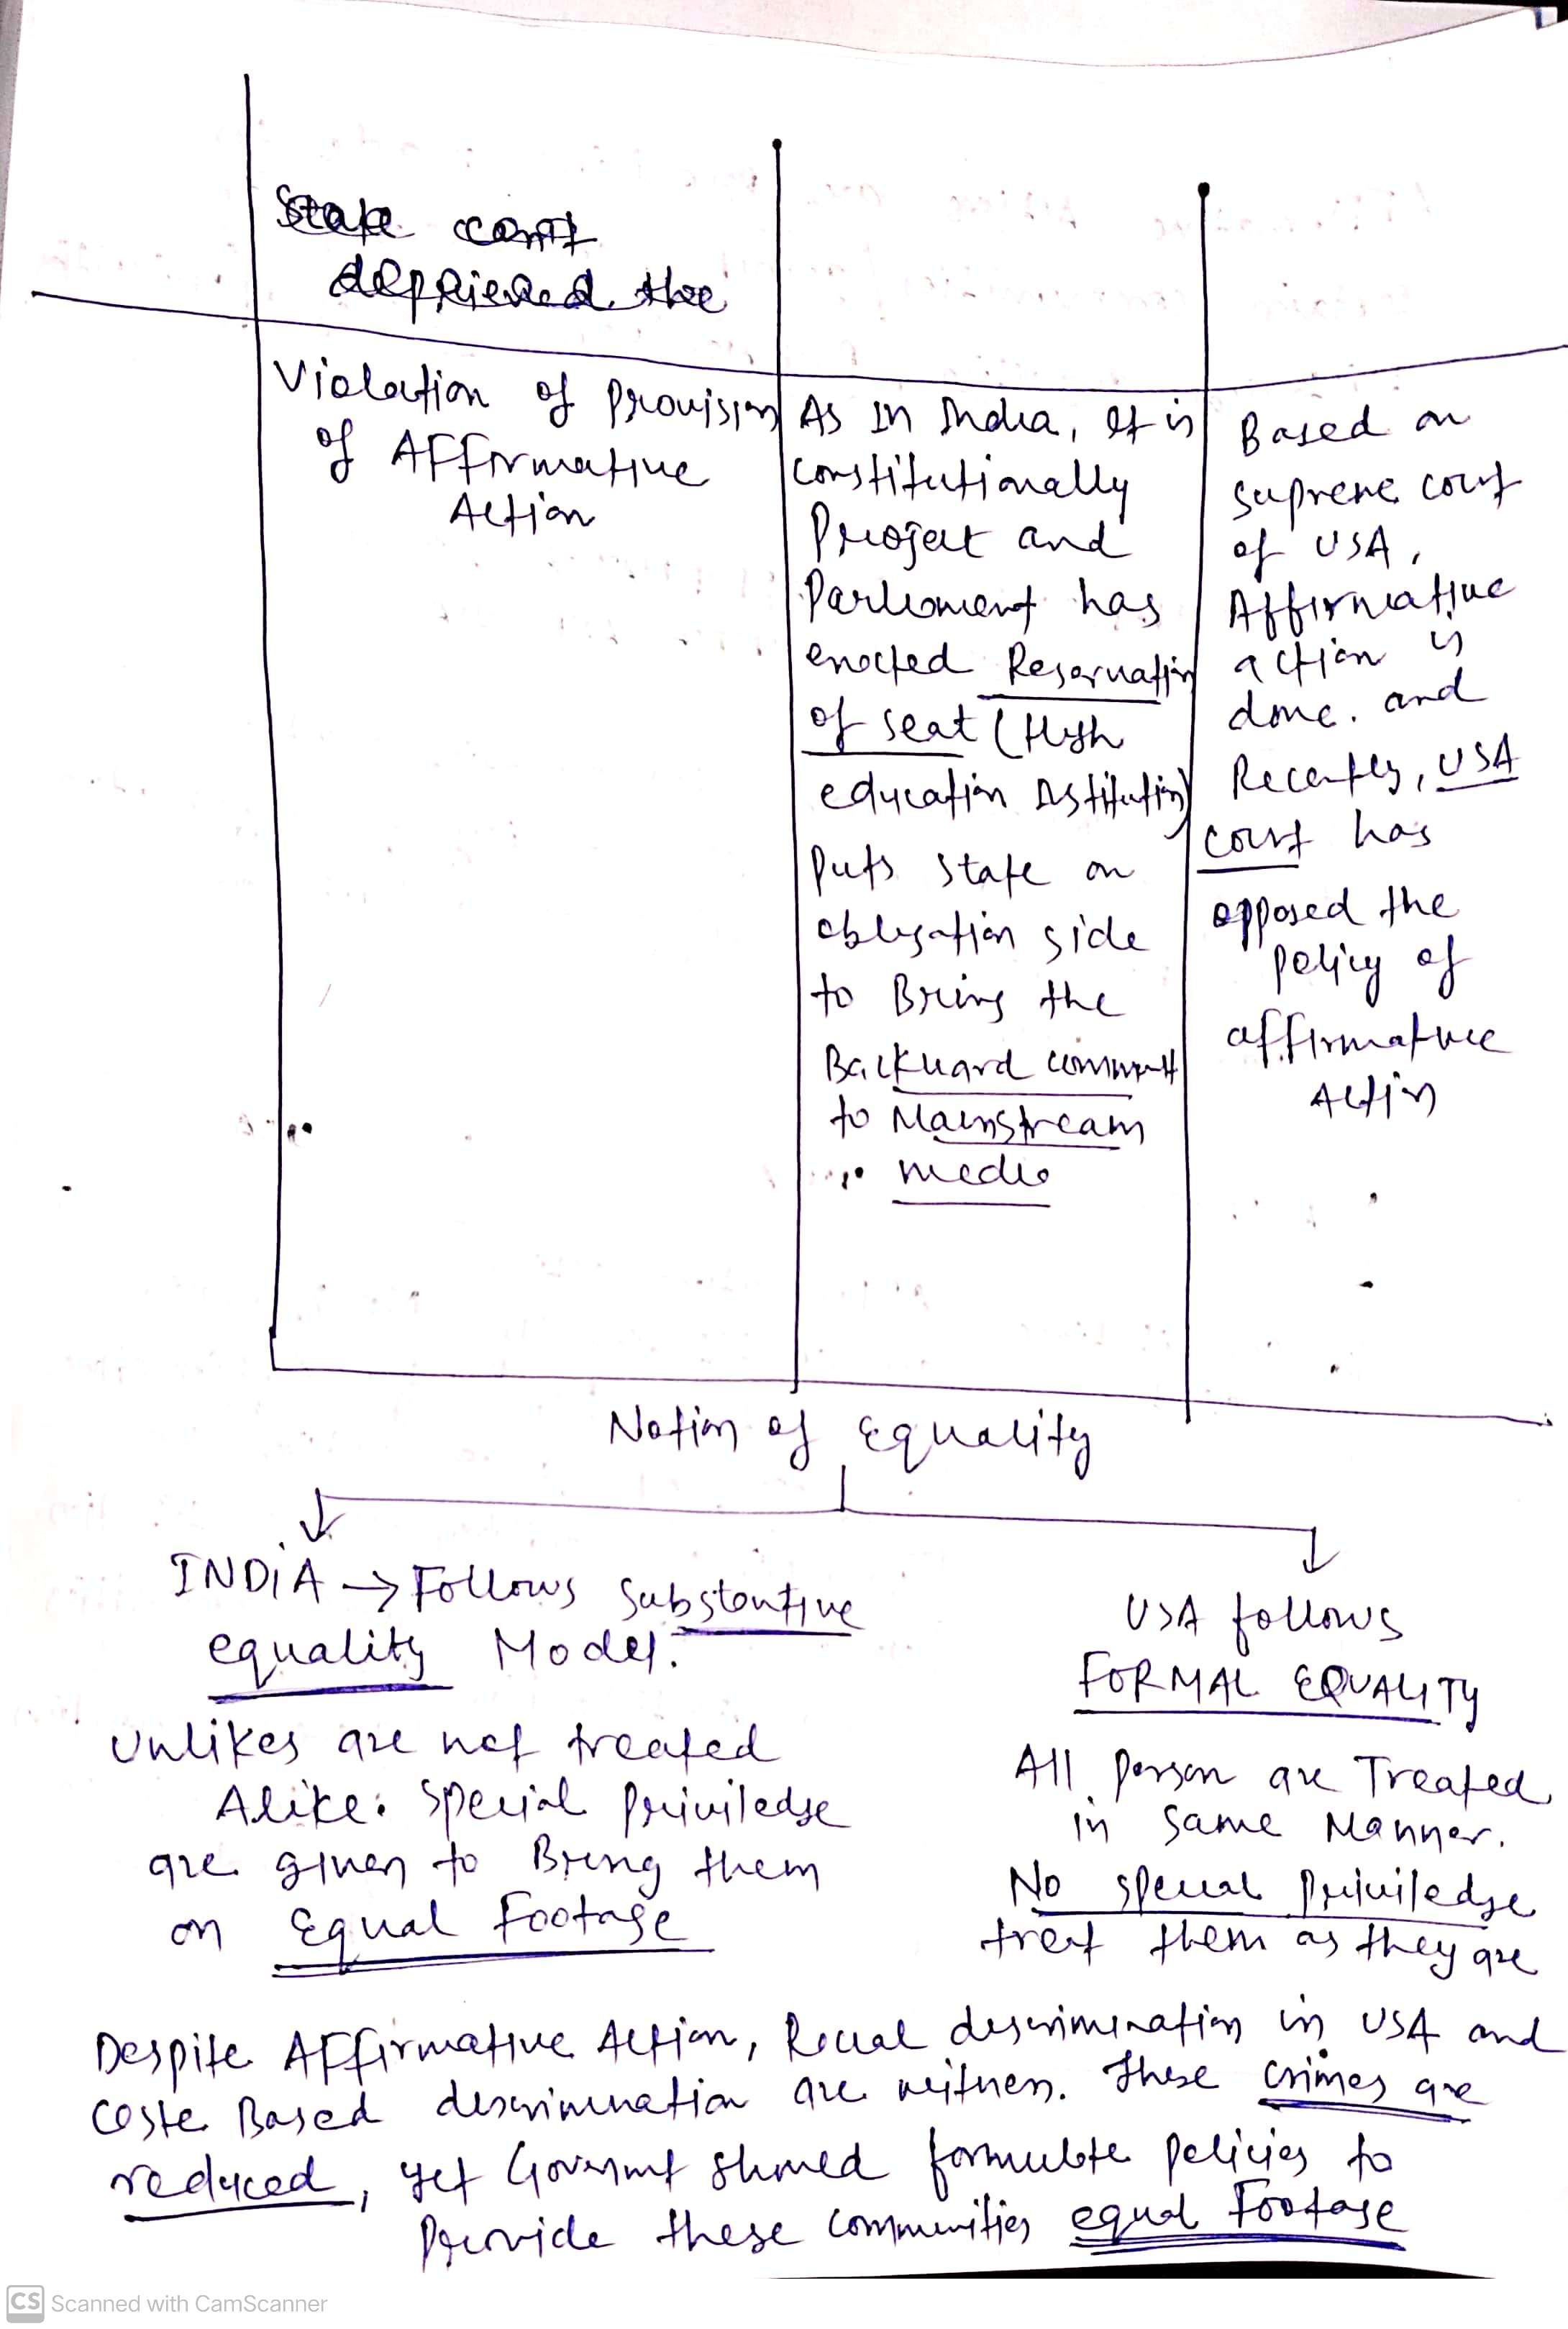 State cant
deprieved the
Violation of provision
of Affirmative
Action
As in India, it is
constitutionally
Project and
Parliament has
enacted Reservation
of seat (High
education Institution)
Puts state on
obligation side
to Bring the
Backward
to Mainstream
media
Based on
supreme court
of USA,
Affirmative
action is
done. and
Recently, USA
court has
opposed the
policy of
affirmative
Action
Notion of Equality
INDIA → Follows substantive
equality Model.
Unlikes are not treated
Alike. Special Priviledge
are given to Bring them
on Equal Footage
USA follows
FORMAL EQUALITY
All person are Treated
in same Manner.
No special Priviledge
treat them as they are
Despite Affirmative Action, Racial descrimination in USA and
Caste Based descrimination are witness. These crimes are
reduced, yet Government should formulate policies to
Provide these communities equal Footage
CS Scanned with CamScanner